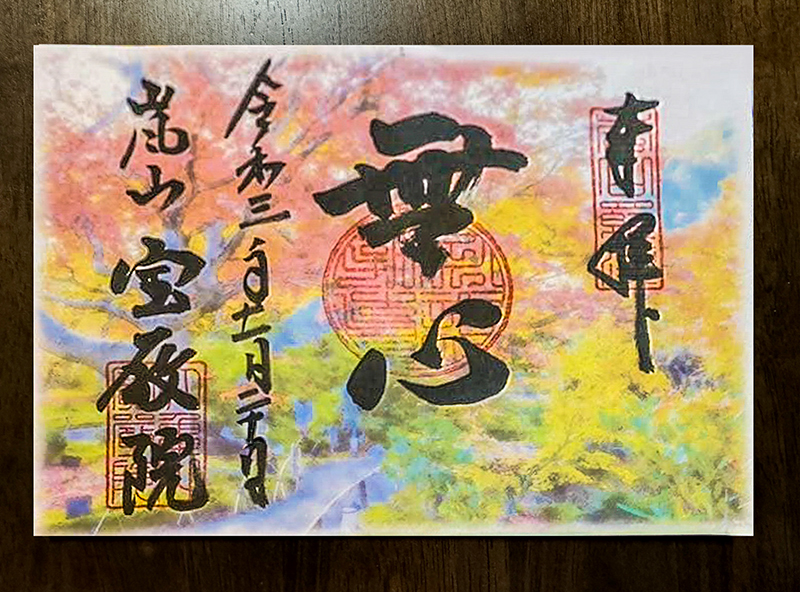 奉拝
無心
令和三年十一月二十日
嵐山 宝厳院